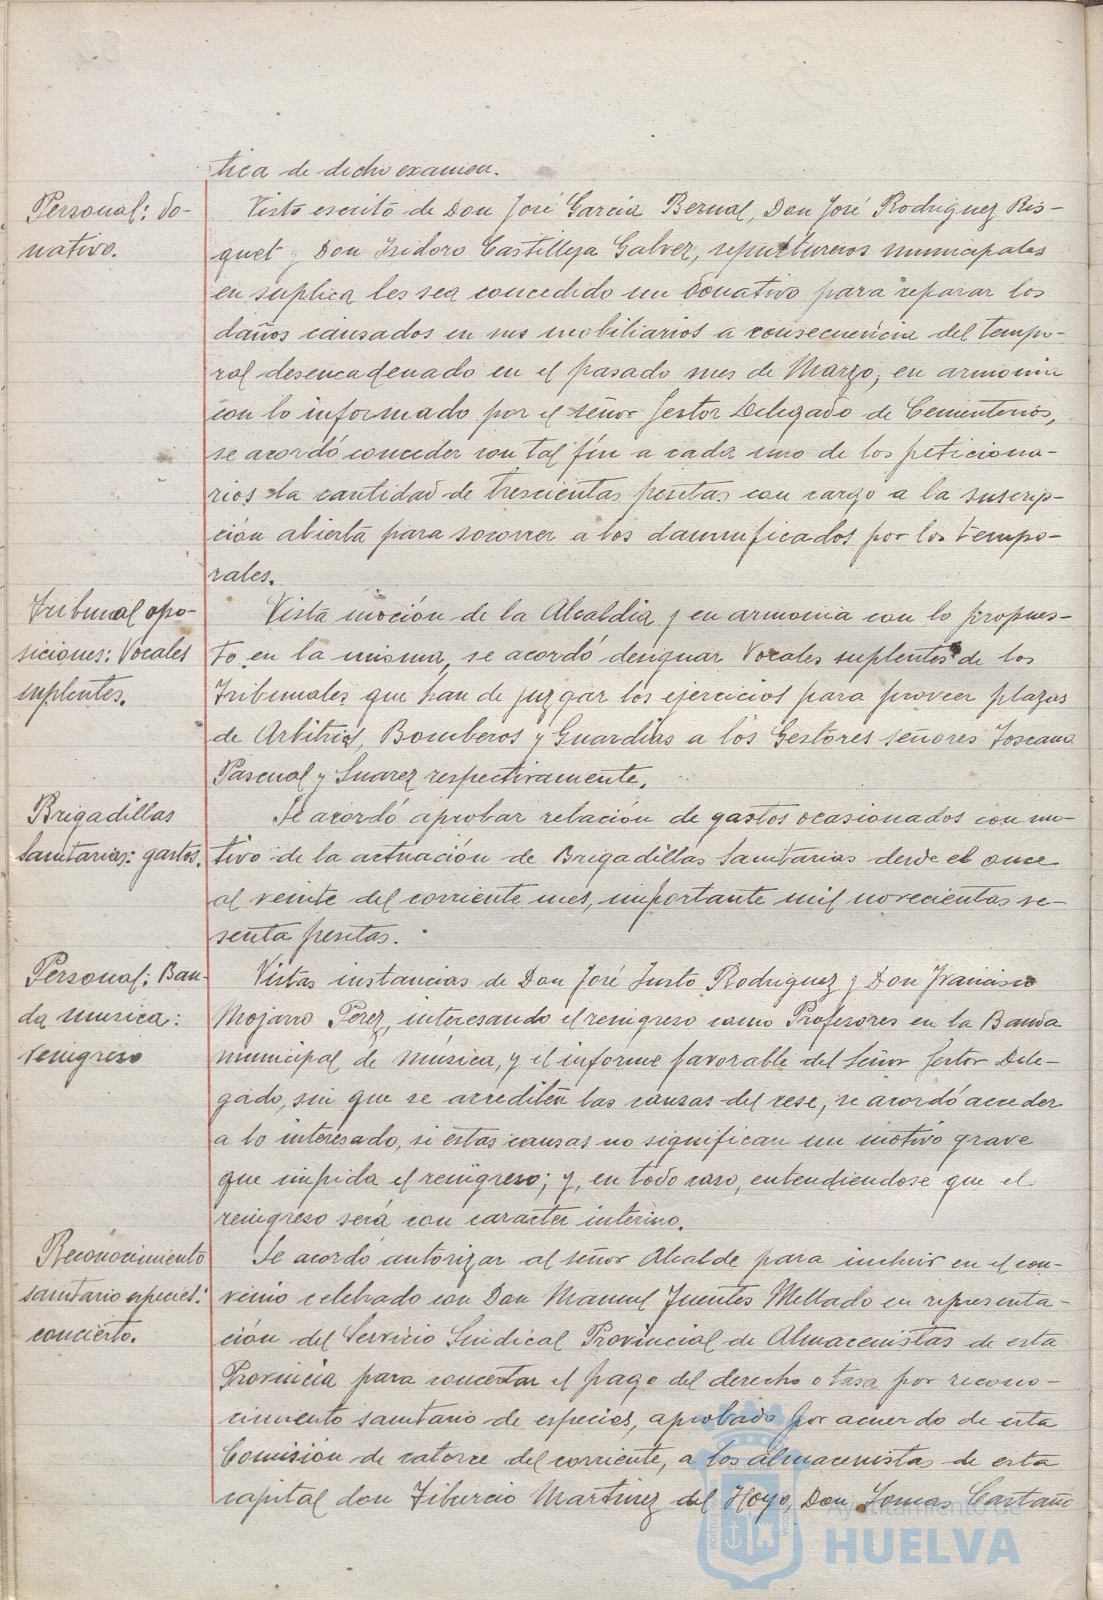 tica de dicho examen.
Personal: do-
nativo.
Visto escrito de Don José Garcia Bernal, Don José Rodriguez Ris-
quet y Don Isidoro Castilleja Galvez, sepultureros municipales
en suplica les sea concedido un donativo para reparar los
daños causados en sus mobiliarios a consecuencia del tempo-
ral desencadenado en el pasado mes de Marzo; en armonia
con lo informado por el señor Gestor Delegado de Cementerios,
se acordó conceder con tal fín a cada uno de los peticiona-
rios la cantidad de trescientas pesetas con cargo a la suscrip-
ción abierta para socorrer a los damnificados por los tempo-
rales.
Tribunal opo-
siciones: Vocales
suplentes.
Vista moción de la Alcaldia y en armonia con lo propues-
to en la misma, se acordó designar Vocales suplentes de los
Tribunales que han de juzgar los ejercicios para proveer plazas
de Arbitrios, Bomberos y Guardias a los Gestores señores Toscano
Pascual y Suarez respectivamente.
Brigadillas
sanitarias: gastos.
Se acordó aprobar relación de gastos ocasionados con mo-
tivo de la actuación de Brigadillas Sanitarias desde el once
al veinte del corriente mes, importante mil novecientas se-
senta pesetas.
Personal: Ban-
da musica:
reingreso
Vistas instancias de Don José Justo Rodriguez y Don Francisco
Mojarro Perez, interesando el reingreso como Profesores en la Banda
municipal de música, y el informe favorable del Señor Gestor Dele-
gado, sin que se acrediten las causas del cese, se acordó acceder
a lo interesado, si estas causas no significan un motivo grave
que impida el reingreso; y, en todo caso, entendiendose que el
reingreso será con caracter interino.
Reconocimiento
sanitario especies:
concierto.
Se acordó autorizar al señor Alcalde para incluir en el con-
venio celebrado con Don Manuel Fuentes Mellado en representa-
ción del Servicio Sindical Provincial de Almacenistas de esta
Provincia para concertar el pago del derecho o tasa por recono-
cimiento sanitario de especies, aprobado por acuerdo de esta
Comisión de catorce del corriente, a los almacenistas de esta
capital don Tiburcio Martinez del Hoyo, Don Tomas Castaño
Ayuntamiento de
HUELVA